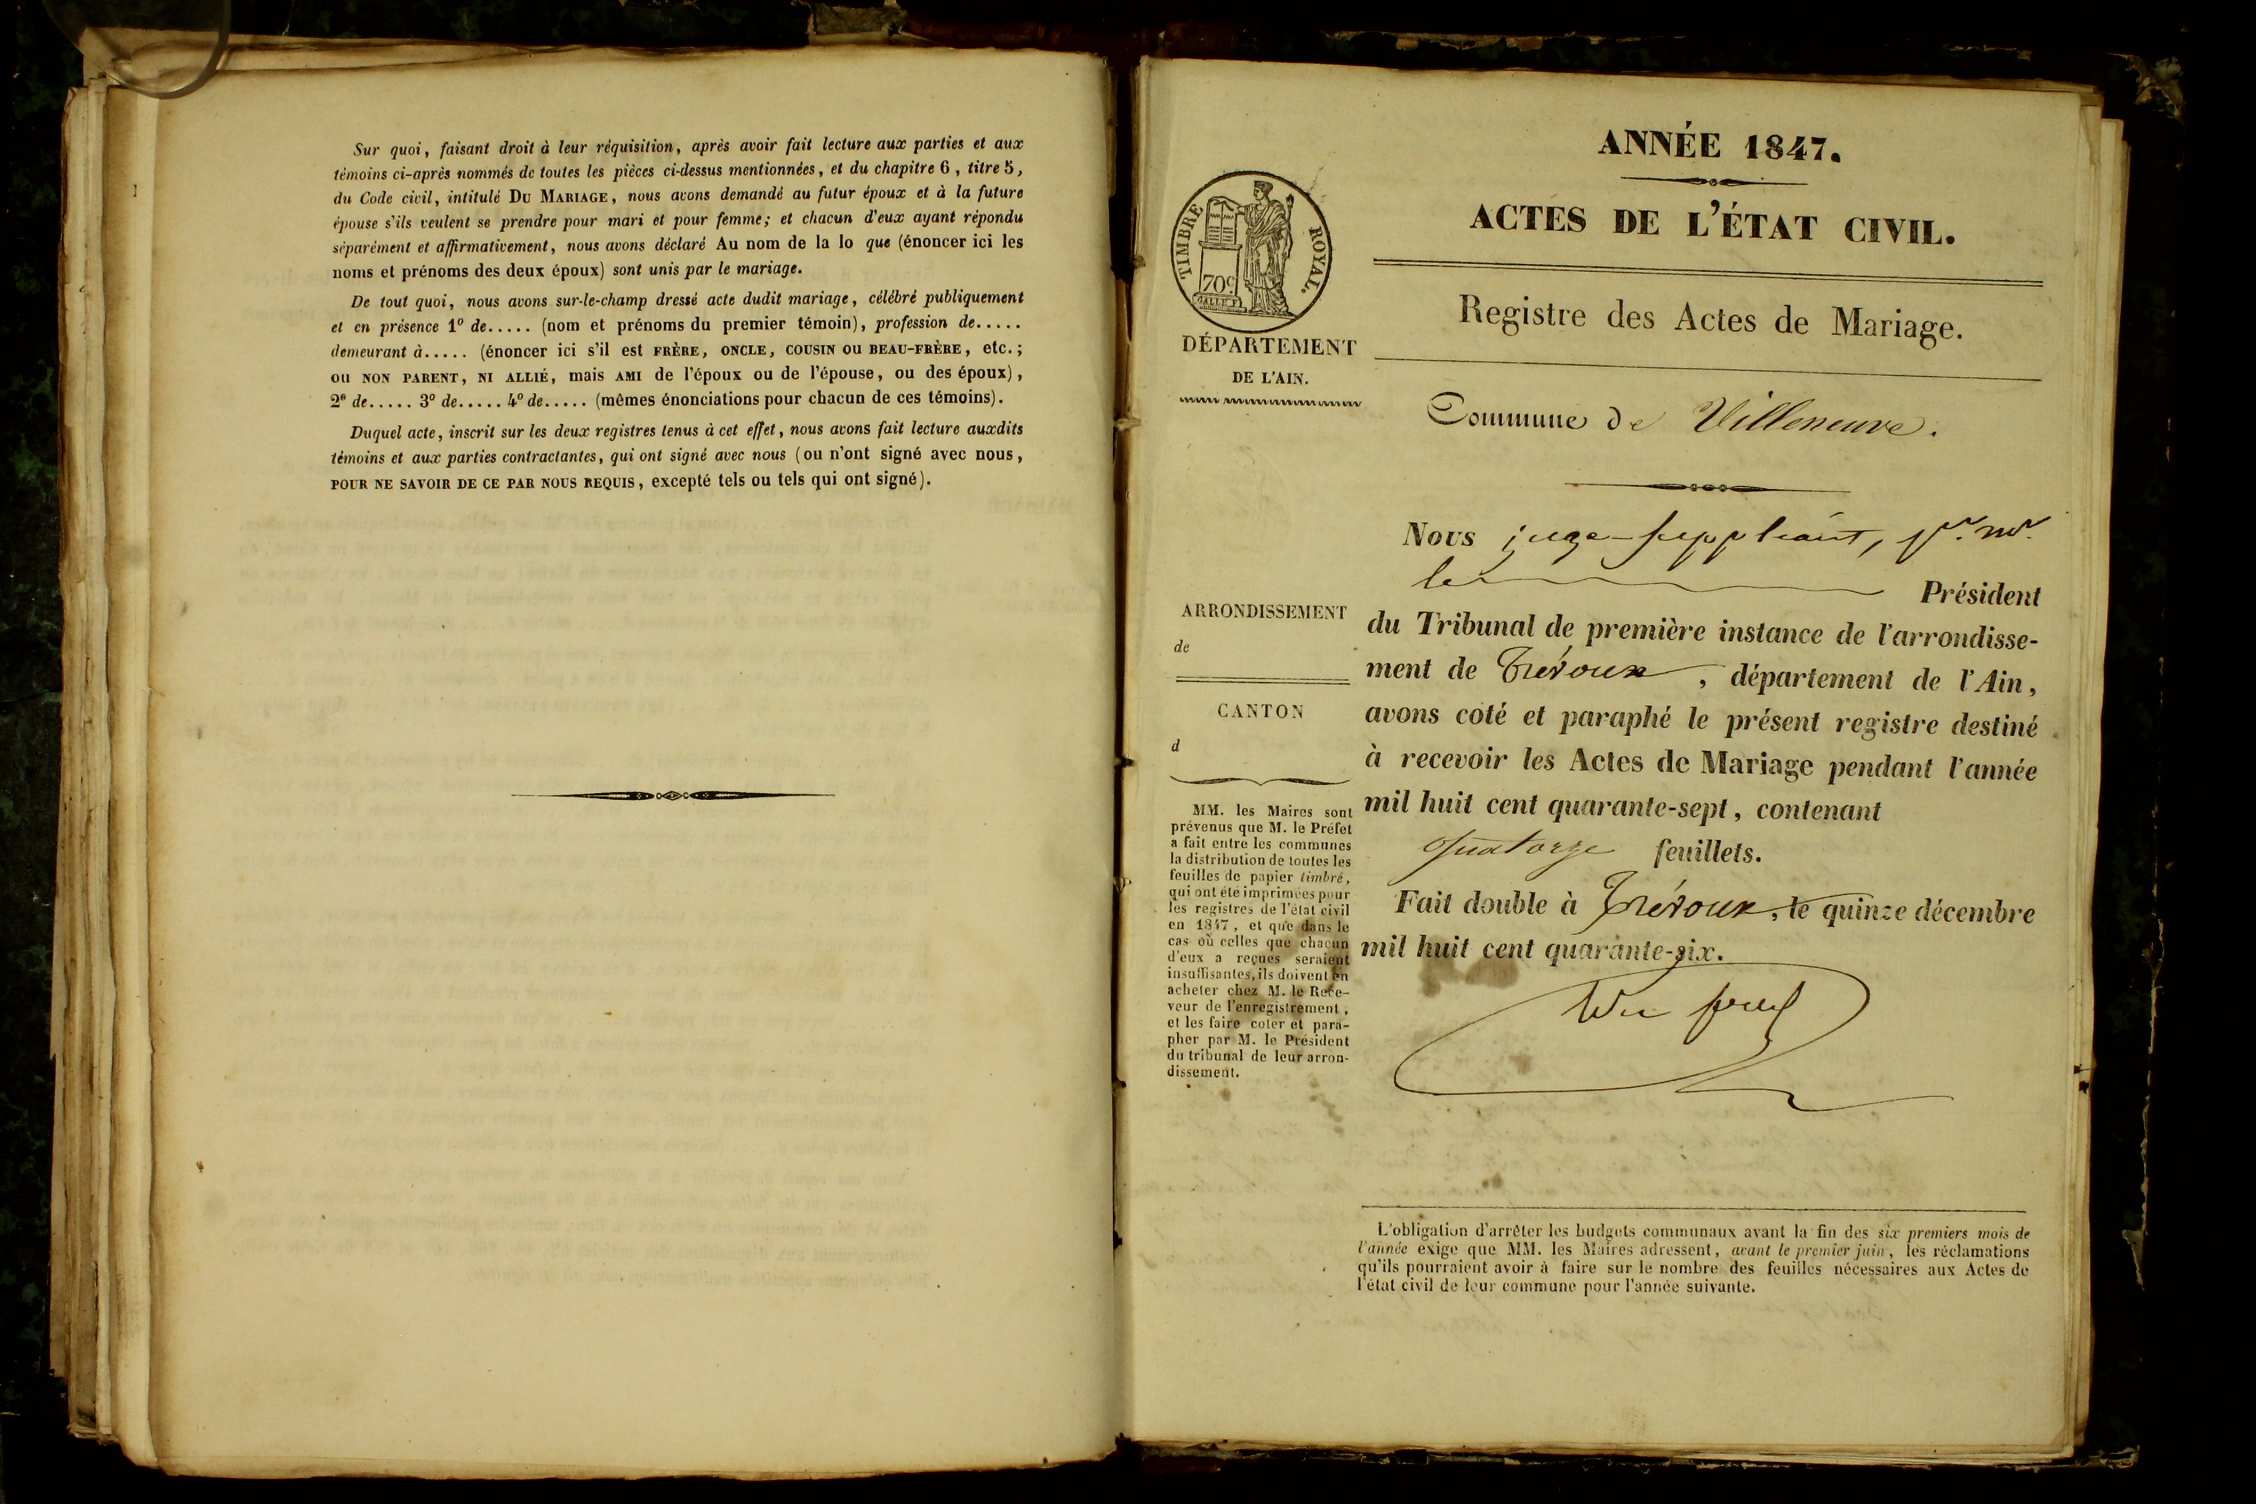 Sur quoi, faisant droit à leur réquisition, après avoir fait lecture aux parties et aux
témoins ci-après nommés de toutes les pièces ci-dessus mentionnées, et du chapitre 6, titre 5,
du Code civil, intitulé DU MARIAGE, nous avons demandé au futur époux et à la future
épouse s'ils veulent se prendre pour mari et pour femme; et chacun d'eux ayant répondu
séparément et affirmativement, nous avons déclaré Au nom de la lo que (énoncer ici les
noms et prénoms des deux époux) sont unis par le mariage.
De tout quoi, nous avons sur-le-champ dressé acte dudit mariage, célébré publiquement
et en présence 1º de..... (nom et prénoms du premier témoin), profession de.....
demeurant à..... (énoncer ici s'il est FRÈRE, ONCLE, COUSIN OU BEAU-FRÈRE, etc.;
OU NON PARENT, NI ALLIÉ, mais AMI de l'époux ou de l'épouse, ou des époux),
2º de..... 3º de..... 4º de..... (mêmes énonciations pour chacun de ces témoins).
Duquel acte, inscrit sur les deux registres tenus à cet effet, nous avons fait lecture auxdits
témoins et aux parties contractantes, qui ont signé avec nous (ou n'ont signé avec nous,
POUR NE SAVOIR DE CE PAR NOUS REQUIS, excepté tels ou tels qui ont signé).
TIMBRE ROYAL.
70c
DÉPARTEMENT
DE L'AIN.
ARRONDISSEMENT
de
CANTON
d
MM. les Maires sont
prévenus que M. le Préfet
a fait entre les communes
la distribution de toutes les
feuilles de papier timbré,
qui ont été imprimées pour
les registres de l'état civil
en 1847, et que dans le
cas où celles que chacun
d'eux a reçues seraient
insuffisantes, ils doivent en
acheter chez M. le Rece-
veur de l'enregistrement,
et les faire coter et para-
pher par M. le Président
du tribunal de leur arron-
dissement.
ANNÉE 1847.
ACTES DE L'ÉTAT CIVIL.
Registre des Actes de Mariage.
Commune de Villeneuve.
Nous juge-suppléant, pr. mr.
le Président
du Tribunal de première instance de l'arrondisse-
ment de Trévoux, département de l'Ain,
avons coté et paraphé le présent registre destiné
à recevoir les Actes de Mariage pendant l'année
mil huit cent quarante-sept, contenant
quatorze feuillets.
Fait double à Trévoux, le quinze décembre
mil huit cent quarante-six.
L'obligation d'arrêter les budgets communaux avant la fin des six premiers mois de
l'année exige que MM. les Maires adressent, avant le premier juin, les réclamations
qu'ils pourraient avoir à faire sur le nombre des feuilles nécessaires aux Actes de
l'état civil de leur commune pour l'année suivante.